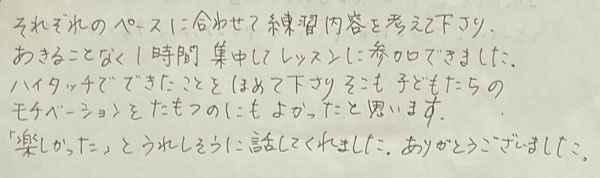 それぞれのペースに合わせて練習内容を考えて下さり、
あきることなく1時間集中してレッスンに参加できました。
ハイタッチでできたことをほめて下さりそこも子どもたちの
モチベーションをたもつのにもよかったと思います。
「楽しかった」とうれしそうに話してくれました。ありがとうございました。